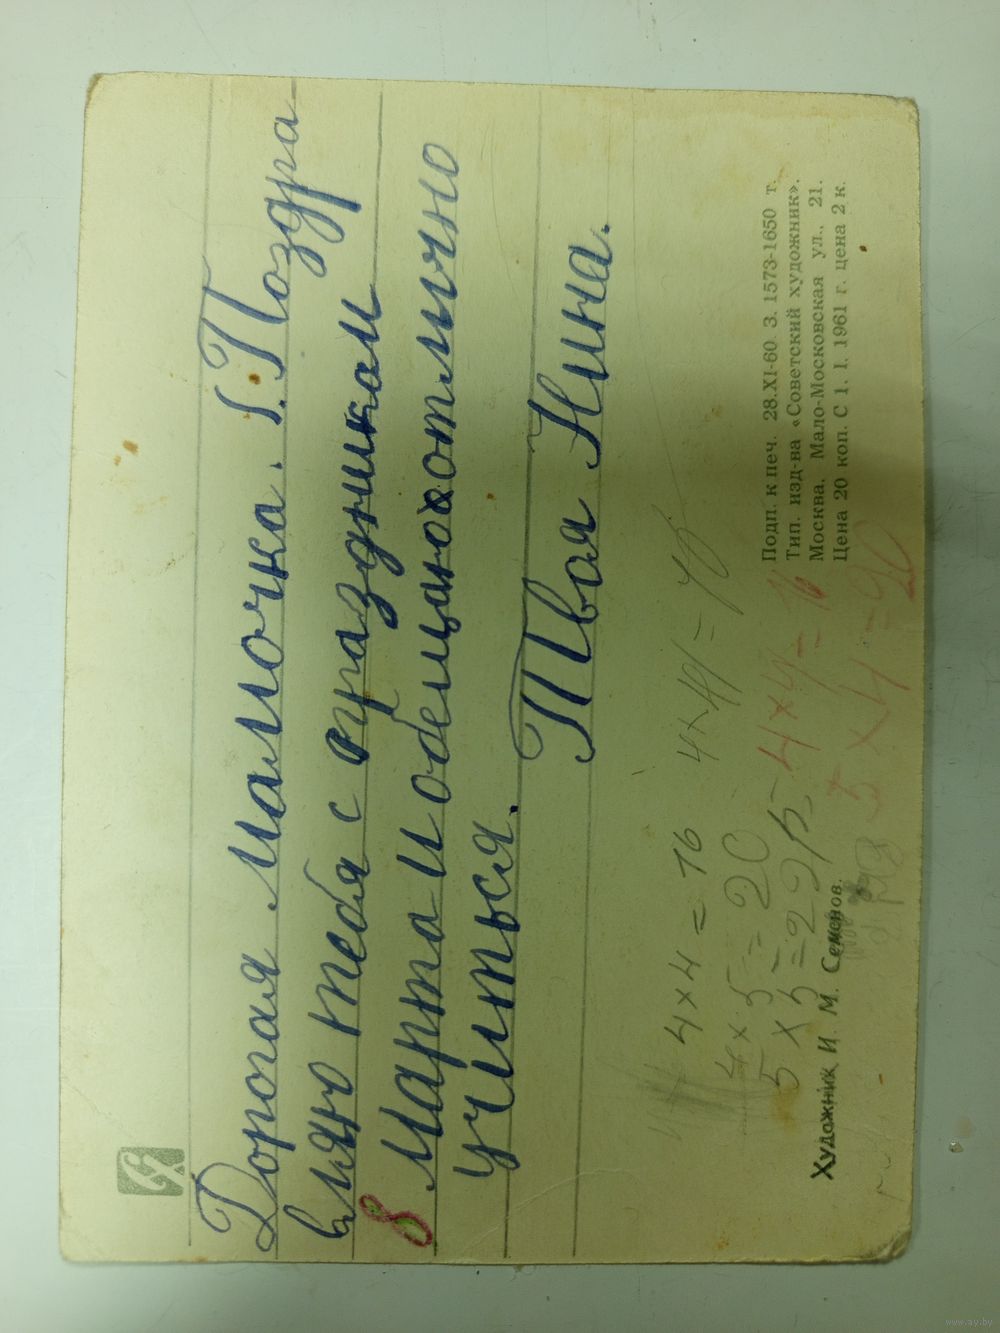 Дорогая мамочка. Поздра-
вляю тебя с праздником
8 Марта и обещаю отлично
учиться.
Твоя Нина.
4×4=16
4×5=20
5×5=25
4×4=16
4×4=16
5×4=20
Художник И. М. Семенов.
Подп. к печ. 28.XI-60 З. 1573-1650 т.
Тип. изд-ва «Советский художник».
Москва, Мало-Московская ул., 21.
Цена 20 коп. С 1. I. 1961 г. цена 2 к.
www.ay.by